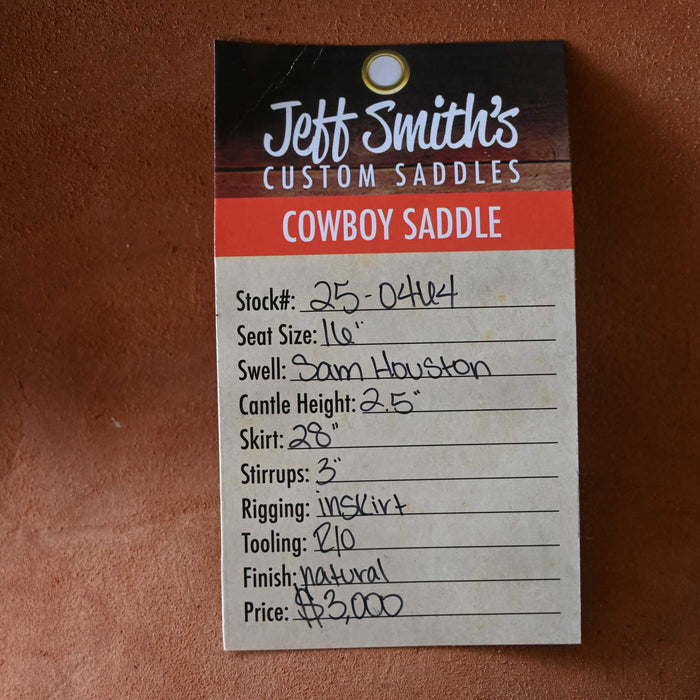 Jeff Smith's
CUSTOM SADDLES
COWBOY SADDLE
Stock#: 25-0464
Seat Size: 16"
Swell: Sam Houston
Cantle Height: 2.5"
Skirt: 28"
Stirrups: 3"
Rigging: inskirt
Tooling: R/O
Finish: natural
Price: $3,000